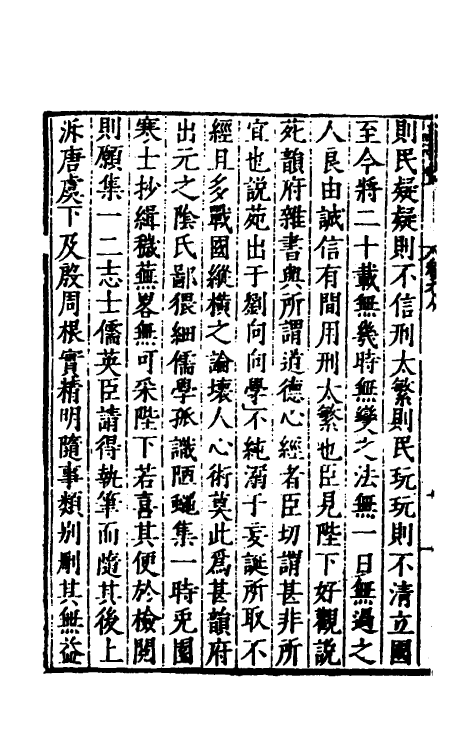 則民疑疑則不信刑太繁則民玩玩則不清立國
至今將二十載無幾時無變之法無一日無過之
人良由誠信有間用刑太繁也臣見陛下好觀說
苑韻府雜書與所謂道德心經者臣切謂甚非所
宜也說苑出于劉向向學不純溺于妄誕所取不
經且多戰國縱橫之論壞人心術莫此爲甚韻府
出元之陰氏鄙猥細儒學孤識陋蝇集一時兎園
寒士抄緝穢蕪畧無可采陛下若喜其便於檢閱
則願集一二志士儒英臣請得執筆而隨其後上
泝唐虞下及殷周根實精明隨事類别刪其無益